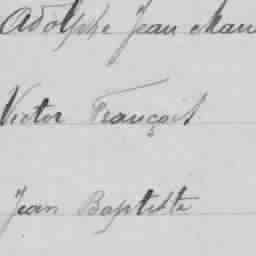 Adolphe Jean Mari
Victor François
Jean Baptiste